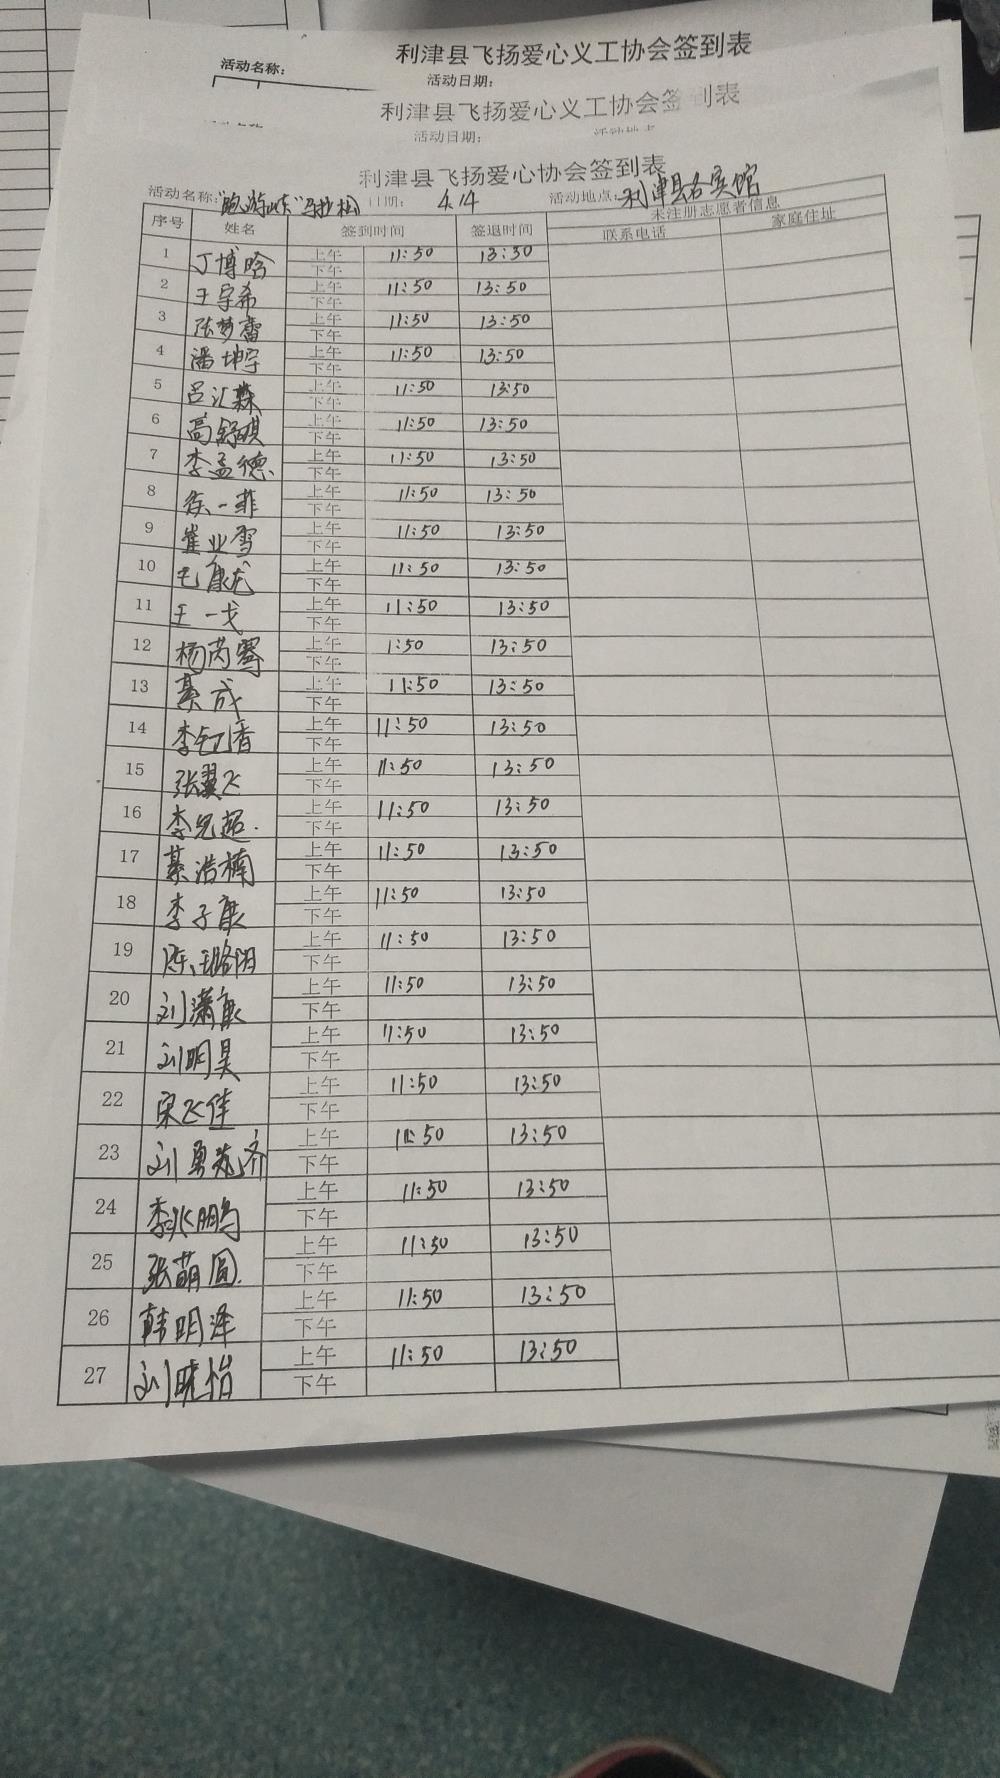 利津县飞扬爱心义工协会签到表
活动名称：
活动日期：
利津县飞扬爱心义工协会签到表
活动日期：
利津县飞扬爱心协会签到表
活动名称：“跑游山东”马拉松 日期： 4.14 活动地点：利津县右宾馆
序号 姓名 签到时间 签退时间 未注册志愿者信息
联系电话 家庭住址
1 丁博晗 上午 11:50 13:30
下午
2 王宇希 上午 11:50 13:50
下午
3 张梦蕾 上午 11:50 13:50
下午
4 潘坤宇 上午 11:50 13:50
下午
5 吕汇霖 上午 11:50 13:50
下午
6 高舒琪 上午 11:50 13:50
下午
7 李孟德 上午 11:50 13:50
下午
8 徐一菲 上午 11:50 13:50
下午
9 崔业雪 上午 11:50 13:50
下午
10 毛康龙 上午 11:50 13:50
下午
11 王一戈 上午 11:50 13:50
下午
12 杨芮骞 上午 1:50 13:50
下午
13 綦成 上午 11:50 13:50
下午
14 李 香 上午 11:50 13:50
下午
15 张翼飞 上午 11:50 13:50
下午
16 李兆超 上午 11:50 13:50
下午
17 綦浩楠 上午 11:50 13:50
下午
18 李子康 上午 11:50 13:50
下午
19 陈璐阳 上午 11:50 13:50
下午
20 刘潇康 上午 11:50 13:50
下午
21 刘明昊 上午 11:50 13:50
下午
22 宋飞佳 上午 11:50 13:50
下午
23 刘勇 济 上午 11:50 13:50
下午
24 李兆鹏 上午 11:50 13:50
下午
25 张萌圆 上午 11:50 13:50
下午
26 韩明泽 上午 11:50 13:50
下午
27 刘晓怡 上午 11:50 13:50
下午